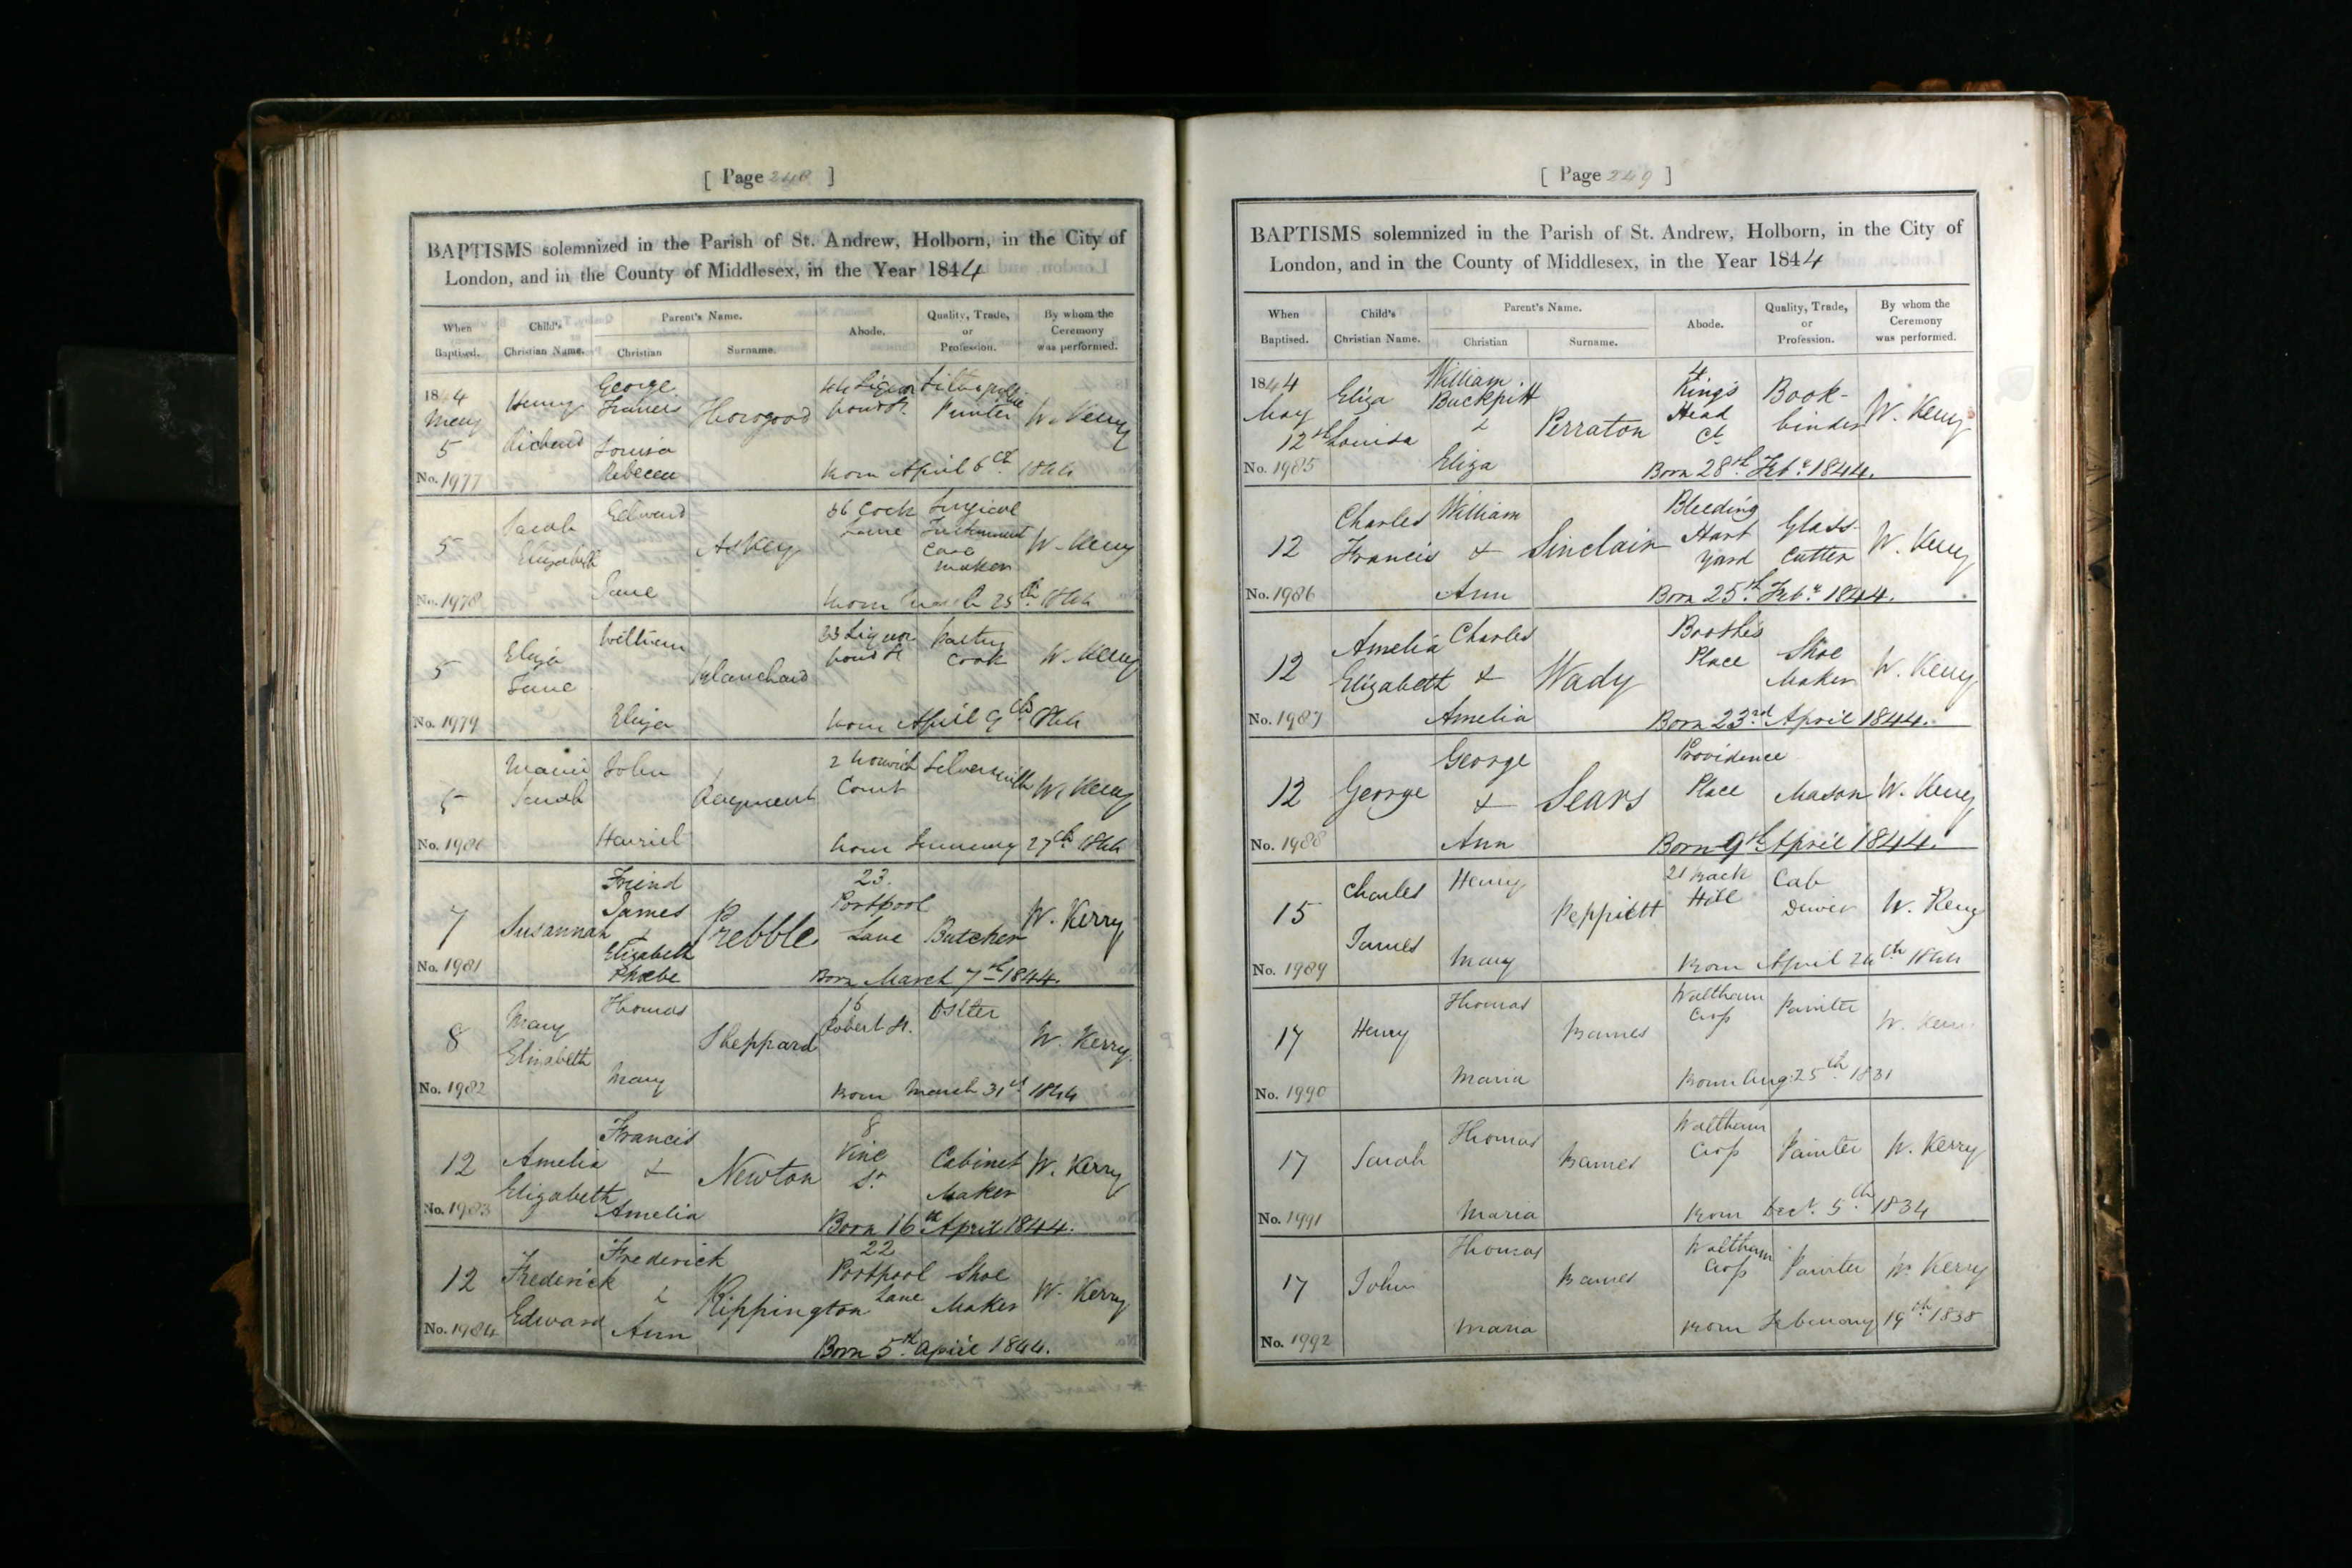 [ Page 248 ]
BAPTISMS solemnized in the Parish of St. Andrew, Holborn, in the City of
London, and in the County of Middlesex, in the Year 1844
When Baptised. Child's Christian Name. Parent's Name. Christian Surname. Abode. Quality, Trade, or Profession. By whom the Ceremony was performed.
1844 May 5 No. 1977
Henry Richard
George Francis Louisa Rebecca
Horogood
44 Liquor pond St.
Printer
W. Kerry
born April 6th 1844
5 No. 1978
Sarah Elizabeth
Edward Jane
Askey
66 Cock Lane
Surgical Instrument Case maker
W. Kerry
born March 25th 1844
5 No. 1979
Eliza Jane
William Eliza
Blanchard
33 Liquor pond St
Pastry Cook
W. Kerry
born April 9th 1844
5 No. 1980
Maria Sarah
John Harriet
Rayment
2 Norwich Court
Silversmith
W. Kerry
born January 27th 1844
7 No. 1981
Susannah
Friend James & Elizabeth Phoebe
Prebble
23. Portpool Lane
Butcher
W. Kerry
Born March 7th 1844.
8 No. 1982
Mary Elizabeth
Thomas Mary
Sheppard
16 Robert St.
Ostler
W. Kerry.
Born March 31st 1844
12 No. 1983
Amelia Elizabeth
Francis & Amelia
Newton
8 Vine St
Cabinet Maker
W. Kerry
Born 16th April 1844.
12 No. 1984
Frederick Edward
Frederick & Ann
Rippington
22 Portpool Lane
Shoe Maker
W. Kerry
Born 5th April 1844.
[ Page 249 ]
BAPTISMS solemnized in the Parish of St. Andrew, Holborn, in the City of
London, and in the County of Middlesex, in the Year 1844
When Baptised. Child's Christian Name. Parent's Name. Christian Surname. Abode. Quality, Trade, or Profession. By whom the Ceremony was performed.
1844 May 12th No. 1985
Eliza Louisa
William Buckpitt & Eliza
Perraton
4 Kings Head Ct
Book-binder
W. Kerry
Born 28th Feby 1844.
12 No. 1986
Charles Francis
William & Ann
Sinclair
Bleeding Hart Yard
Glass-Cutter
W. Kerry
Born 25th Feby 1844.
12 No. 1987
Amelia Elizabeth
Charles & Amelia
Wady
Booth's Place
Shoe Maker
W. Kerry
Born 23rd April 1844.
12 No. 1988
George
George & Ann
Sears
Providence Place
Mason
W. Kerry
Born 9th April 1844.
15 No. 1989
Charles James
Henry Mary
Peppiett
21 Back Hill
Cab Driver
W. Kerry
Born April 24th 1844
17 No. 1990
Henry
Thomas Maria
Barnes
Waltham Crofs
Painter
W. Kerry
Born Aug. 25th 1831
17 No. 1991
Sarah
Thomas Maria
Barnes
Waltham Crofs
Painter
W. Kerry
Born Decr. 5th 1834
17 No. 1992
John
Thomas Maria
Barnes
Waltham Crofs
Painter
W. Kerry
Born February 19th 1838